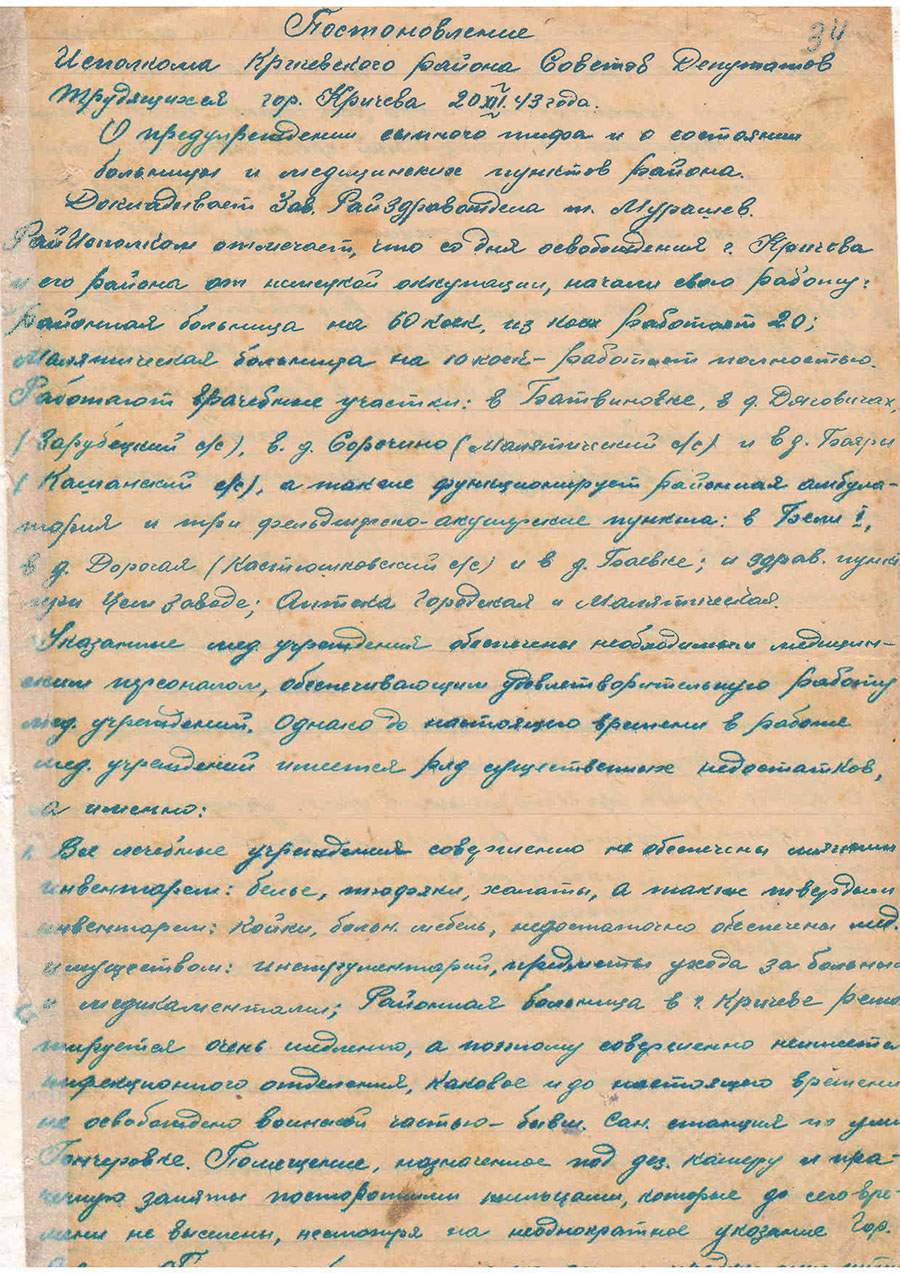 Постановление
34
Исполкома Кричевского района Советов Депутатов
Трудящихся гор. Кричева 20 XII. 43 года.
О предупреждении сыпного тифа и о состоянии
больницы и медицинских пунктов района.
Докладывает Зав. Райздравотдела т. Мурашев.
РайИсполком отмечает, что со дня освобождения г. Кричева
и его района от немецкой оккупации, начали свою работу:
Районная больница на 60 коек, из коих работает 20;
Малятическая больница на 10 коек – работает полностью.
Работают врачебные участки: в Батвиновке, в д. Дяговичах,
(Зарубецкий с/с), в д. Сорочино (Малятический с/с) и в д. Бояры
(Каманский с/с), а также функционирует районная амбула-
тория и три фельдшерско-акушерские пункта: в Бели I,
в д. Дорогая (Костюшковский с/с) и в д. Баевке; и здрав. пункт
при Цем заводе; Аптека Городская и Малятическая.
Указанные мед. учреждения обеспечены необходимым медицин-
ским персоналом, обеспечивающим удовлетворительную работу
мед. учреждений. Однако до настоящего времени в работе
мед. учреждений имеется ряд существенных недостатков,
а именно:
1. Все лечебные учреждения совершенно не обеспечены мягким
инвентарем: белье, тюфяки, халаты, а также твердым
инвентарем: Койки, больн. мебель, недостаточно обеспечены мед.
имуществом: инструментарий, предметы ухода за больными
и медикаментами; Районная больница в г. Кричеве ремо
тируется очень медленно, а поэтому совершенно неимеется
инфекционного отделения, каковое и до настоящего времени
не освобождено воинской частью – бывш. Сан. станция по ули
Гончеровке. Помещение, назначенное под дез. камеру и пра-
чечную заняты посторонними жильцами, которые до сего вре-
мени не выселены, несмотря на неоднократное указание Гор.